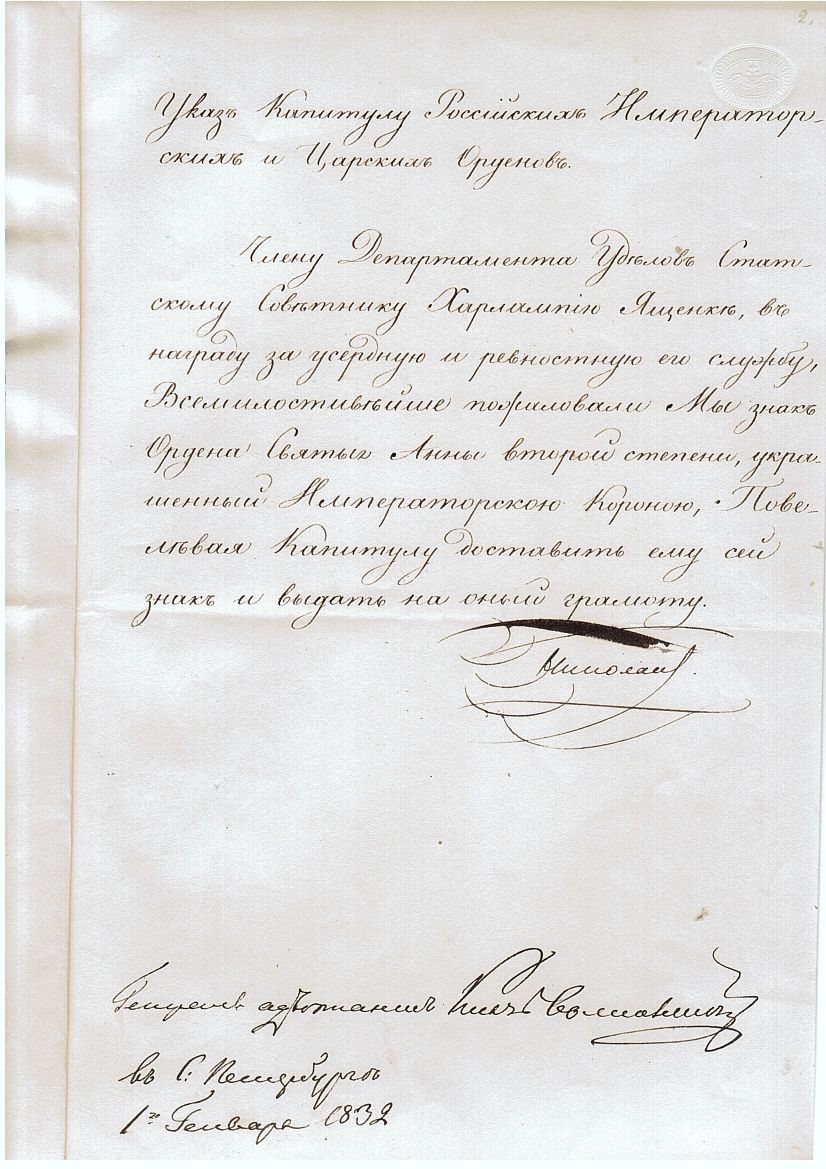 2.
Указъ Капитулу Россійскихъ Император-
скихъ и Царскихъ Орденовъ.
Члену Департамента Удѣловъ Стат-
скому Совѣтнику Харлампію Ященкѣ, въ
награду за усердную и ревностную его службу,
Всемилостивѣйше пожаловали Мы знакъ
Ордена Святыя Анны второй степени, укра-
шенный Императорскою Короною, Пове-
лѣвая Капитулу доставить ему сей
знакъ и выдать на оный грамоту.
Николай.
Генералъ адъютантъ Князь Волконскій
въ С: Петербургѣ
1го Генваря 1832